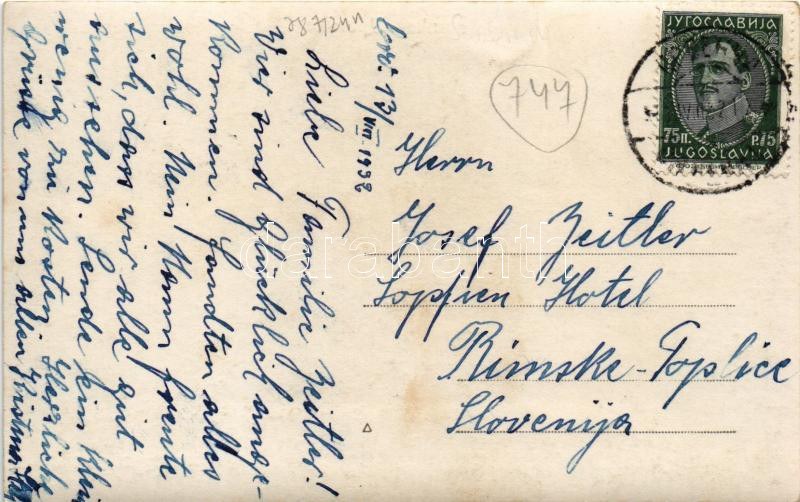 787/24n
747
ЈУГОСЛАВИЈА
75п. P.75
JUGOSLAVIJA
13/VIII. 1932
Liebe Familie Zeitler!
Wir sind glücklich ange-
kommen. Fandten alles
wohl. Mein Mann freute
sich, dass wir alle gut
aussehen. Sende ein klein
wenig zu Kosten. Herzliche
Grüsse von uns allen
Herrn
Josef Zeitler
Sophien Hotel
Rimske-Toplice
Slovenija
darabanth